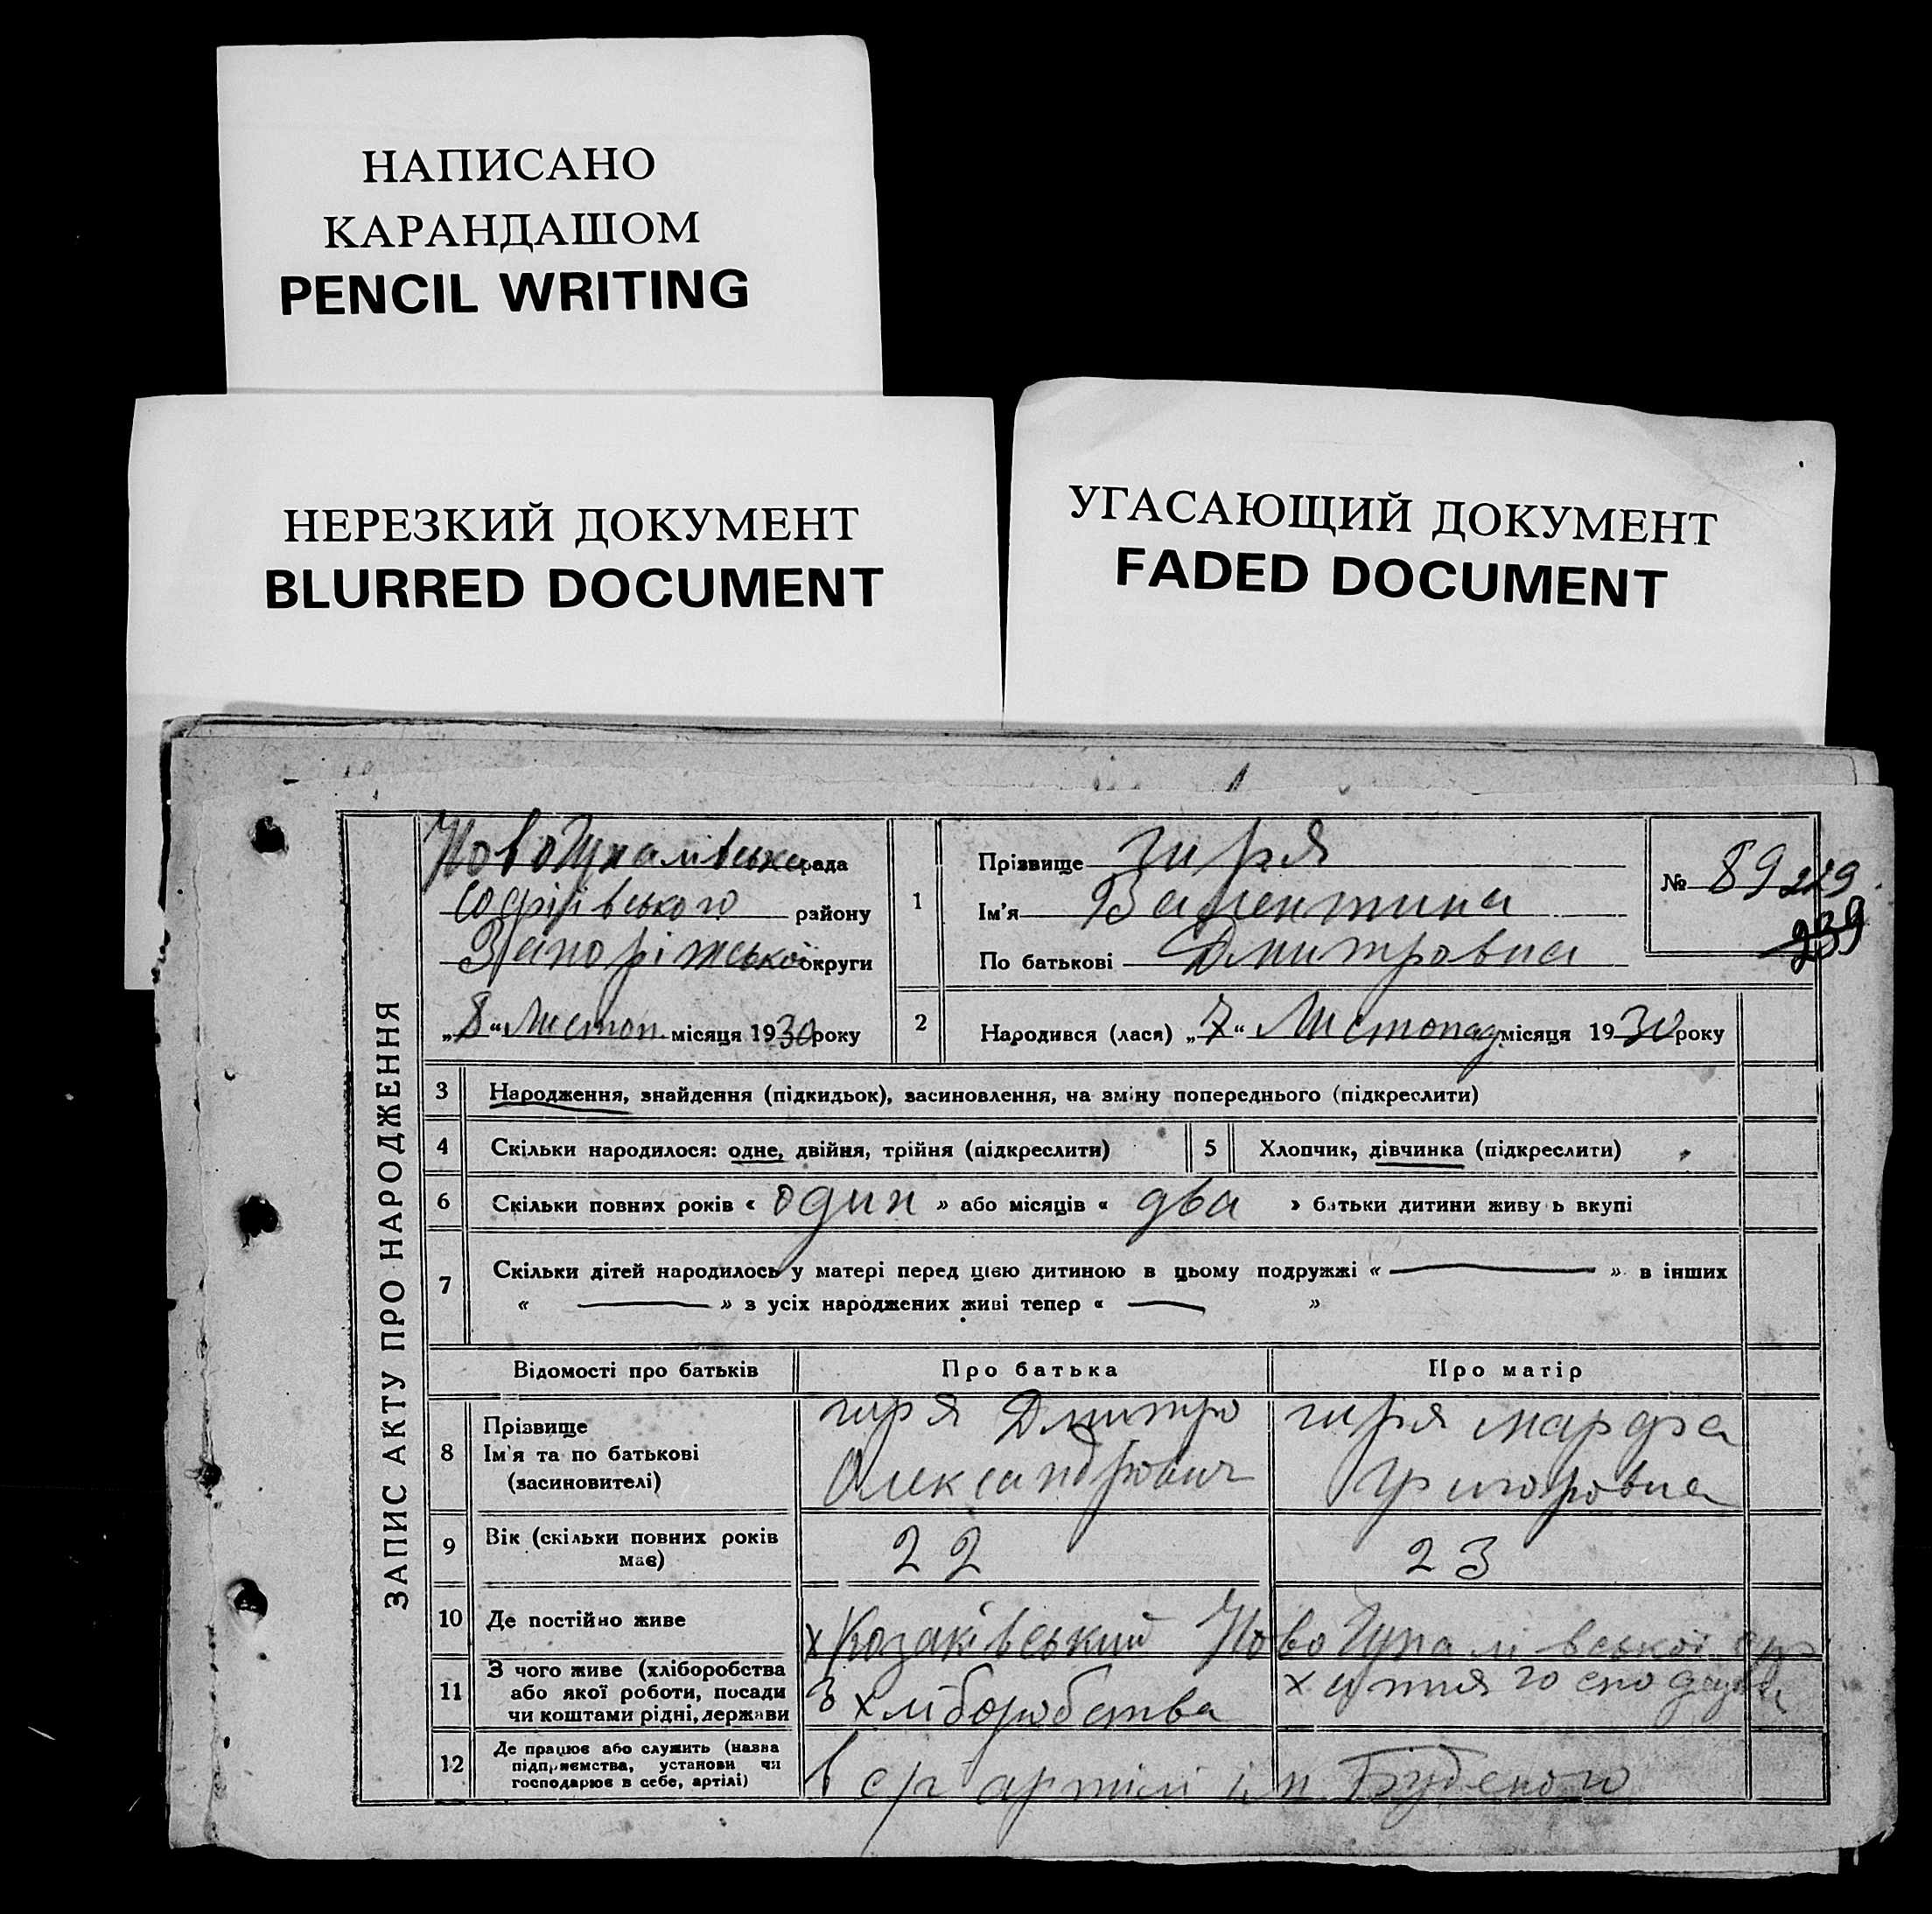 НАПИСАНО
КАРАНДАШОМ
PENCIL WRITING
НЕРЕЗКИЙ ДОКУМЕНТ
BLURRED DOCUMENT
УГАСАЮЩИЙ ДОКУМЕНТ
FADED DOCUMENT
ЗАПИС АКТУ ПРО НАРОДЖЕННЯ
рада
Софіївського району
Запоріжської округи
„8“ Листоп. місяця 1930 року
1
Прізвище Гиря
Ім'я Валентина
По батькові Дмитровна
№ 89 219
239
2
Народився (лася) „7“ Листопад місяця 1930 року
3 Народження, знайдення (підкидьок), засиновлення, на зміну попереднього (підкреслити)
4 Скільки народилося: одне, двійня, трійня (підкреслити)
5 Хлопчик, дівчинка (підкреслити)
6 Скільки повних років « один » або місяців « два » батьки дитини живуть вкупі
7 Скільки дітей народилось у матері перед цією дитиною в цьому подружжі « — » в інших
« — » з усіх народжених живі тепер « — »
Відомості про батьків Про батька Про матір
8 Прізвище
Ім'я та по батькові
(засиновителі)
гиря Дмитро
Олександрович
гиря марфа
Григоровна
9 Вік (скільки повних років
має)
22 23
10 Де постійно живе
х Козаківський Ново
11 З чого живе (хліборобства
або якої роботи, посади
чи коштами рідні, держави
З хліборобства
12 Де працює або служить (назва
підприємства, установи чи
господарює в себе, артілі)
в с/г артілі ім. Буденого